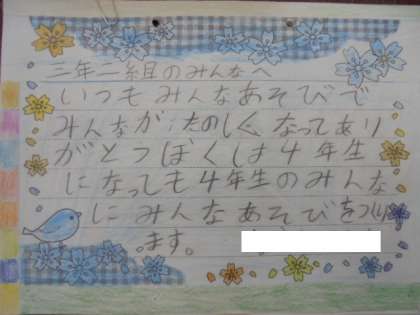 三年二組のみんなへ
いつもみんなあそびで
みんながたのしくなってあり
がとうぼくしは4年生
になっても4年生のみんな
にみんなあそびをつくり
ます。